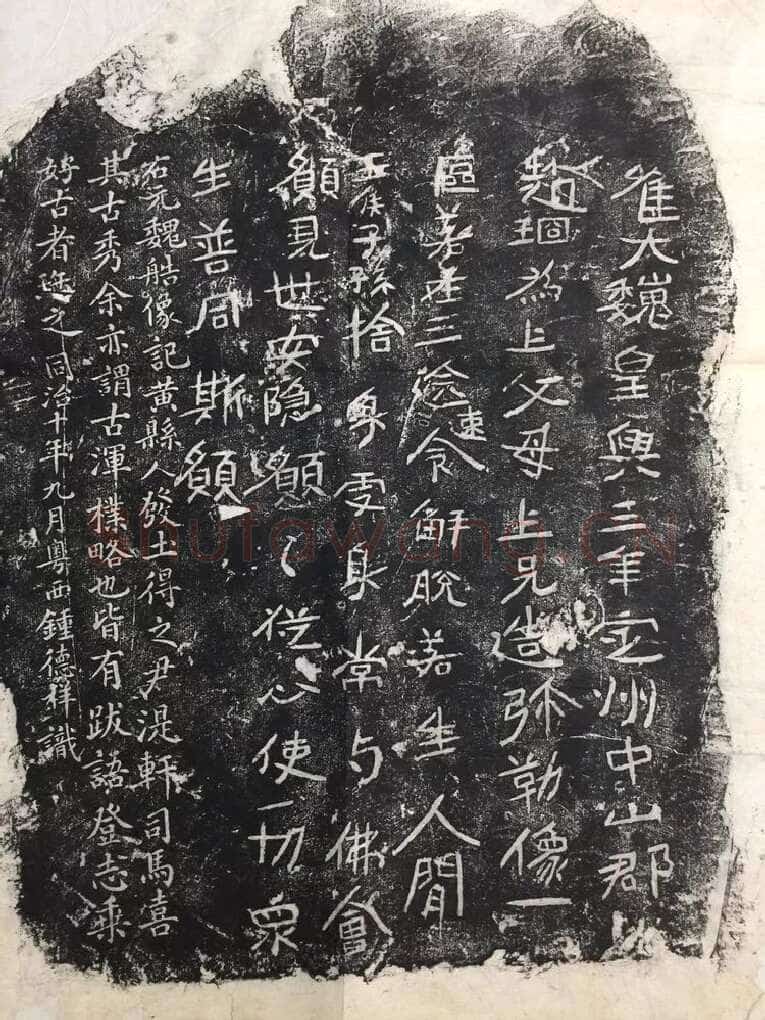 隹大魏皇興三年定州中山郡
趙珇為上父母上兄造弥勒像一
區若在三塗速令解脫若生人間
王侯子孫捨身受身常与佛會
願見世安隐願々從心使一切衆
生普同斯願
右元魏造像記黃縣人發土得之尹湜軒司馬喜
其古秀余亦謂古渾樸略也皆有跋語登志乘
好古者鑒之同治十年九月粵西鍾德祥識
shufawang.CN